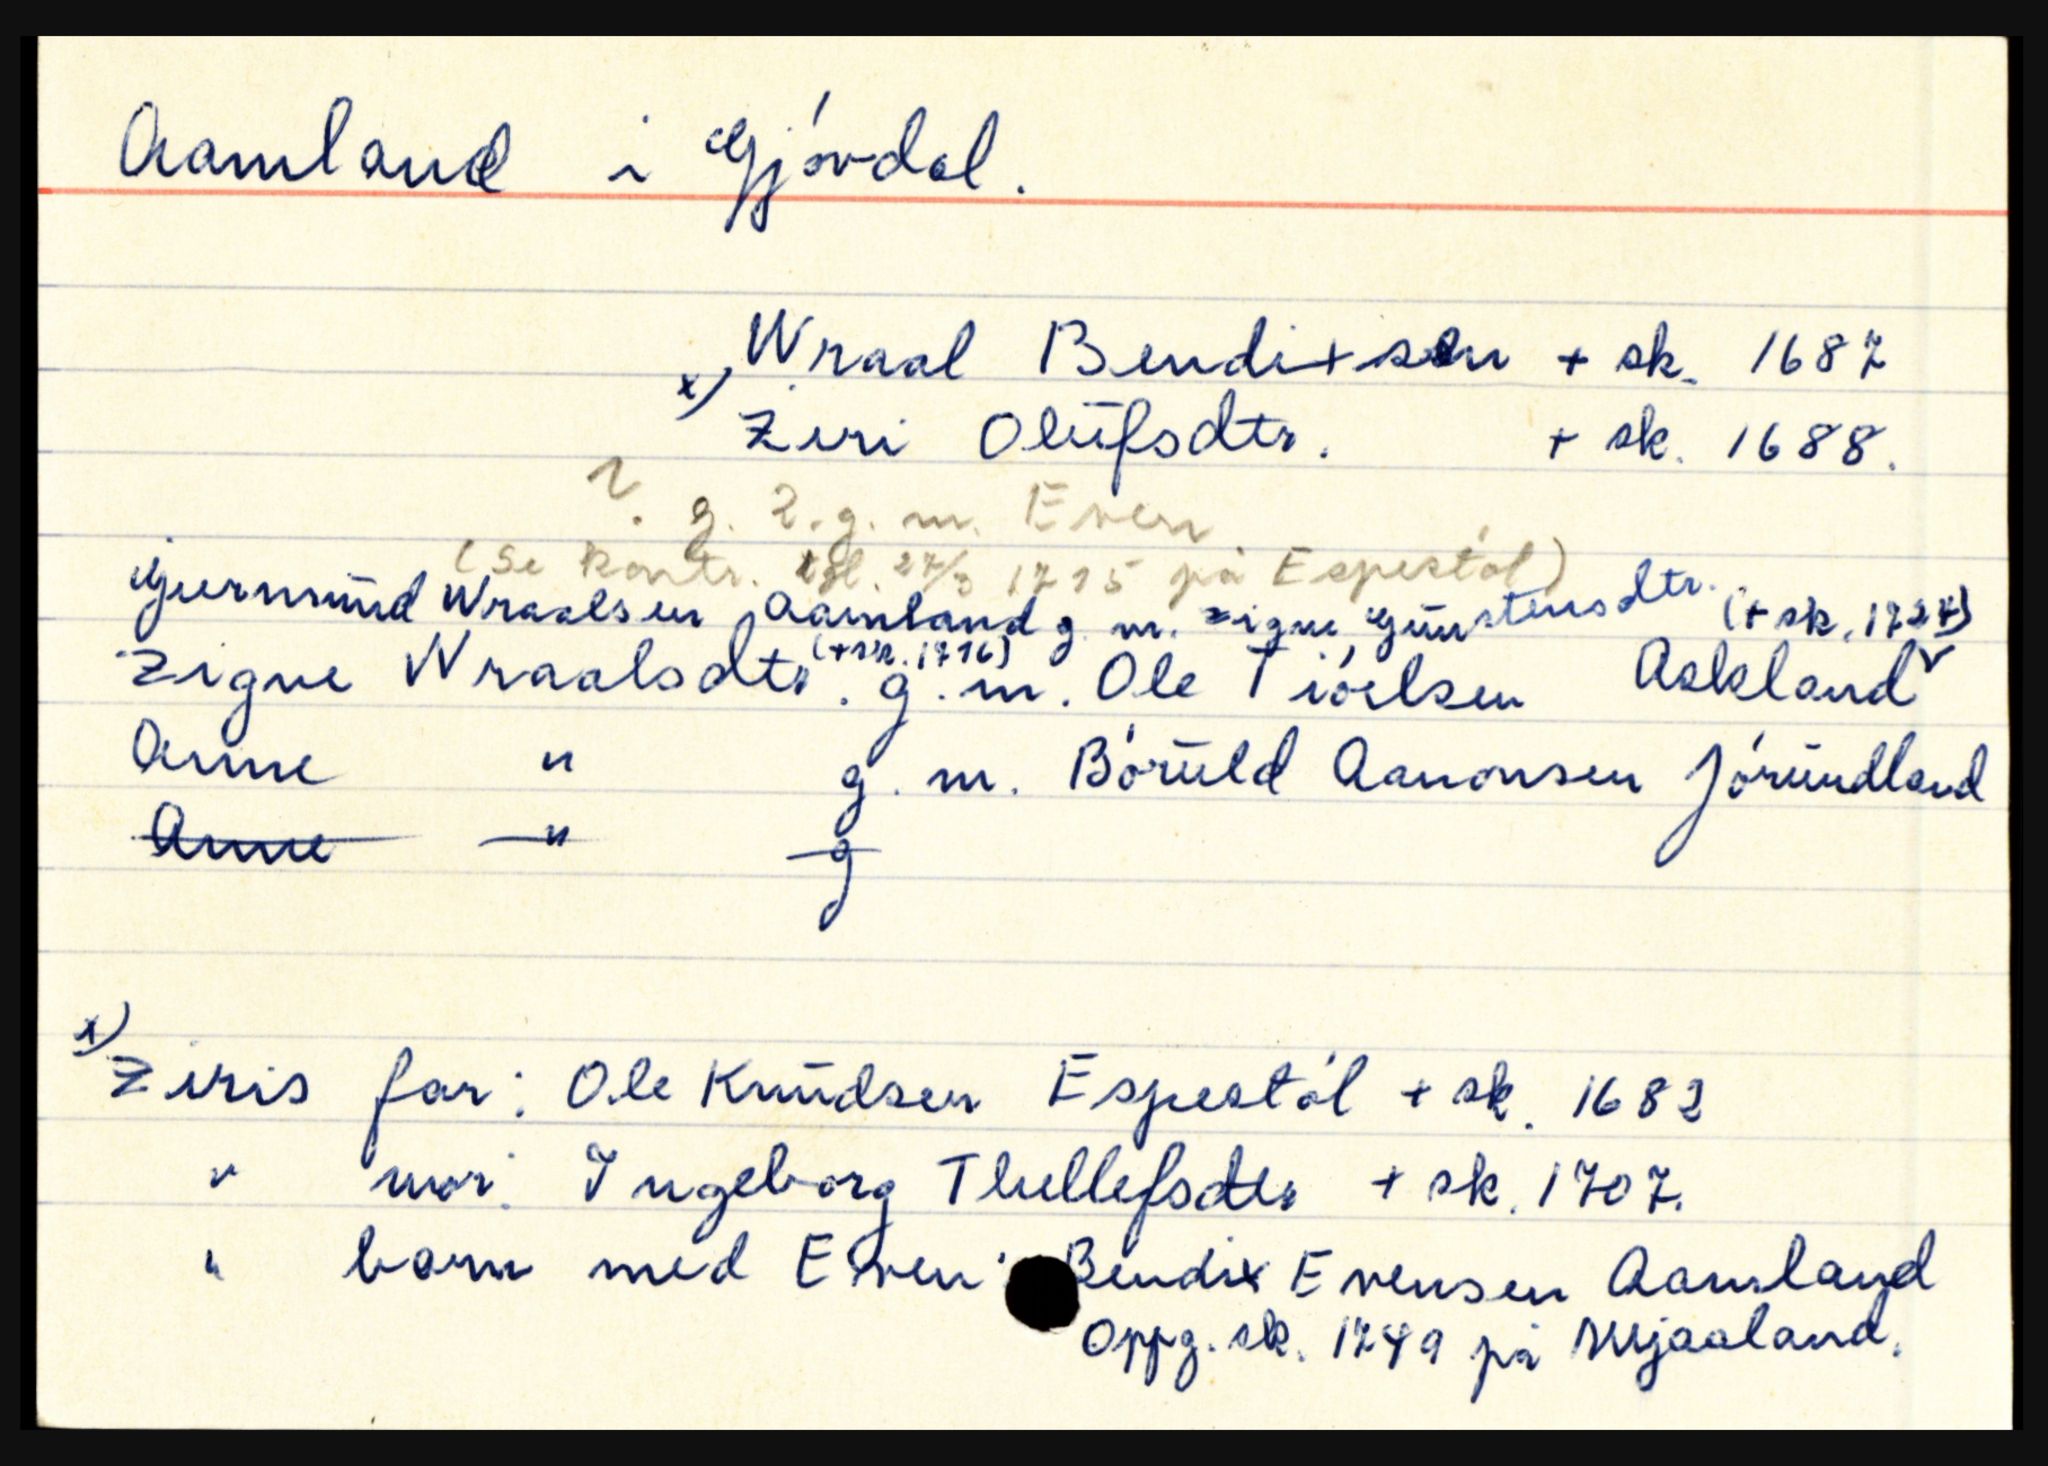 Aamland i Gjövdal.
Wraal Bendixsen + sk. 1687
x) Ziri Olüfsdtr. + sk. 1688.
? g. 2. g. m. Even
(Se kontr. tgl. 27/3 1715 på Espestöl)
Gjermünd Wraalsen Aamland g. m. Zigne Güüstensdtr. (+ sk. 1727)
Zigne Wraalsdtr. (+ sk. 1716) g. m. Ole Tiöelsen Askland v
Anne " g. m. Börüld Aanonsen Jöründland
Anne " g
x) Ziris far: Ole Knüdsen Espestöl + sk. 1682
" mor: Ingeborg Thellefsdtr + sk. 1707.
" barn med Even: Bendix Evensen Aamland
Oppg. sk. 1749 på Mjaaland.